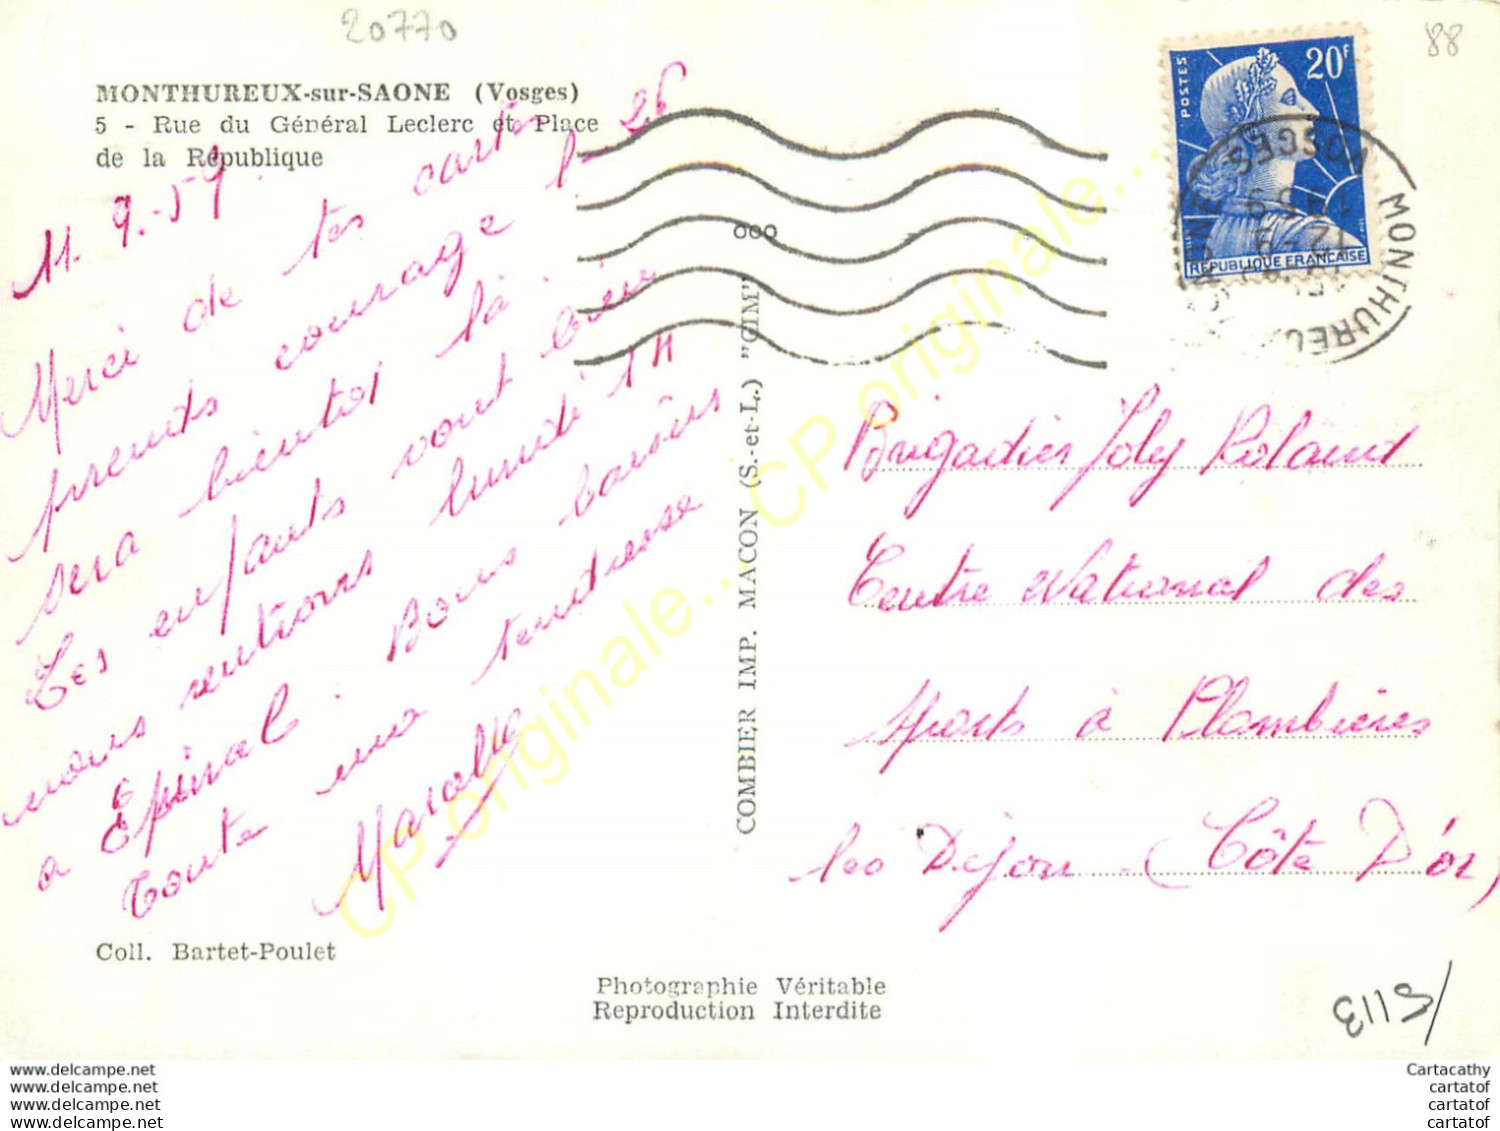 20770
88
MONTHUREUX-sur-SAONE (Vosges)
5 - Rue du Général Leclerc et Place
de la République
11.9.59.
Merci de tes cartes
prends courage le 26
sera bientôt là
Les enfants vont bien
nous rentrons lundi 14
a Epinal. Bons baisers
toute ma tendresse
20F
POSTES
REPUBLIQUE FRANCAISE
MONTHUREUX
VOSGES
12-9
1959
ooo
COMBIER IMP. MACON (S.-et-L.) "CIM"
Brigadier Joly Roland
Centre National des
Sports à Plombières
les Dijon (Côte D'or)
Coll. Bartet-Poulet
Photographie Véritable
Reproduction Interdite
CP originale... CP originale... CP originale...
www.delcampe.net
www.delcampe.net
www.delcampe.net
www.delcampe.net
Cartacathy
cartatof
cartatof
cartatof